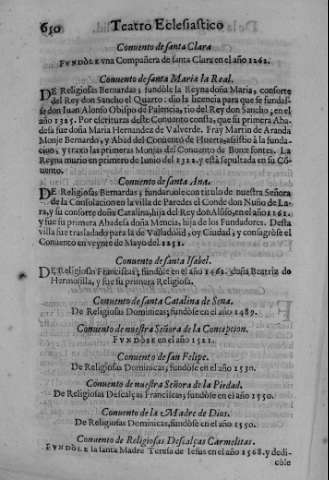 650 Teatro Eclesiastico
Conuento de santa Clara
FVNDÒLE vna Compañera de santa Clara en el año 1262.
Conuento de santa Maria la Real.
DE Religiosas Bernardas; fundòle la Reyna doña Maria, consorte
del Rey don Sancho el Quarto: dio la licencia para que se fundas-
se don Iuan Alonso Obispo de Palencia, tio del Rey don Sancho, en el
año 1325. Por escrituras deste Conuento consta, que su primera Aba-
desa fue doña Maria Hernandez de Valverde. Fray Martin de Aranda
Monje Bernardo, y Abad del Conuento de Huerta, assistiò à la funda-
cion, y traxo las primeras Monjas del Conuento de Buenfontes. La
Reyna murio en primero de Iunio del 1322. y està sepultada en su Cõ-
uento.
Conuento de santa Ana.
DE Religiosas Bernardas; fundaronle con titulo de nuestra Señora
de la Consolacion en la villa de Paredes el Conde don Nuño de La-
ra, y su consorte doña Catalina, hija del Rey don Alfonso, en el año 1262.
y fue su primera Abadesa doña Mencia, hija de los Fundadores. Desta
villa fue trasladado para la de Valladolid, oy Ciudad; y consagròse el
Conuento en veynte de Mayo del
Conuento de santa Isabel.
DE Religiosas Franciscas; fundòle en el año doña Beatriz de
Hermosilla, y fue su primera Religiosa.
Conuento de santa Catalina de Sena.
De Religiosas Dominicas; fundòse en el año 1489.
Conuento de nuestra Señora de la Concepcion.
FVNDÒSE en el año 1521.
Conuento de san Felipe.
De Religiosas Dominicas; fundòse en el año 1530.
Conuento de nuestra Señora de la Piedad.
De Religiosas Descalças Franciscas; fundòse en el año 1550.
Conuento de la Madre de Dios.
De Religiosas Dominicas, fundòse en el año 1550.
Conuento de Religiosas Descalças Carmelitas.
FVNDÒLE la santa Madre Teresa de Iesus en el año 1568. y dedi-
còle